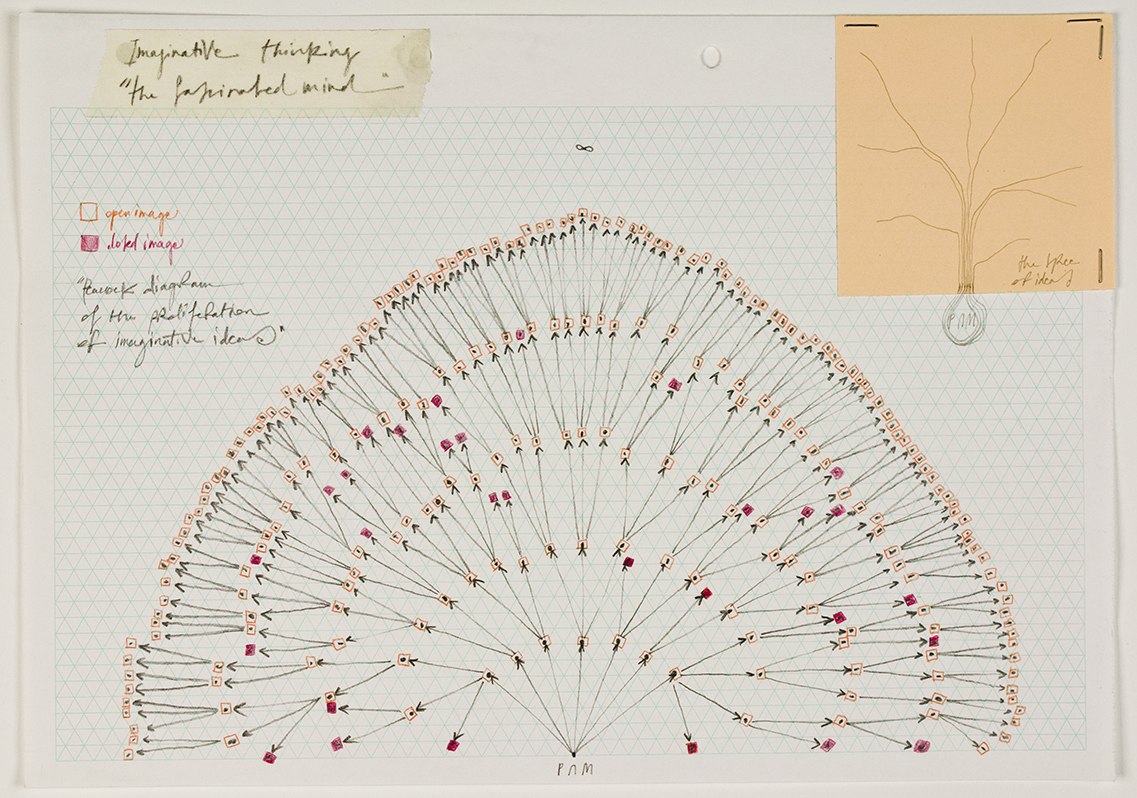 Imaginative thinking
"the fascinated mind"
∞
open image
closed image
"Peacock diagram
of the proliferation
of imaginative ideas"
the tree
of ideas
P∩M
P∩M